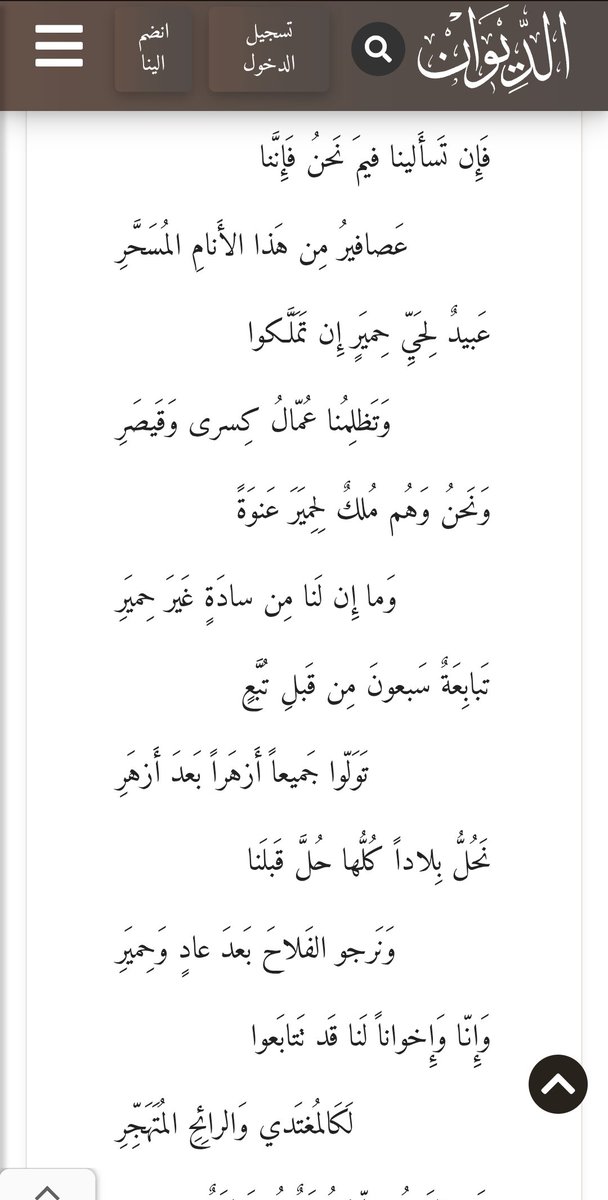 الديوان
تسجيل الدخول
انضم الينا
فَإِن تَسأَلينا فيمَ نَحنُ فَإِنَّنا
عَصافيرُ مِن هَذا الأَنامِ المُسَحَّرِ
عَبيدٌ لِحَيِّ حِميَرٍ إِن تَمَلَّكوا
وَتَظلِمُنا عُمّالُ كِسرى وَقَيصَرِ
وَنَحنُ وَهُم مُلكٌ لِحِميَرَ عَنوَةً
وَما إِن لَنا مِن سادَةٍ غَيرَ حِميَرِ
تَبابِعَةٌ سَبعونَ مِن قَبلِ تُبَّعٍ
تَوَلّوا جَميعاً أَزهَراً بَعدَ أَزهَرِ
نَحُلُّ بِلاداً كُلُّها حُلَّ قَبلَنا
وَنَرجو الفَلاحَ بَعدَ عادٍ وَحِميَرِ
وَإِنّا وَإِخواناً لَنا قَد تَتابَعوا
لَكَالمُغتَدي وَالرائِحِ المُتَهَجِّرِ